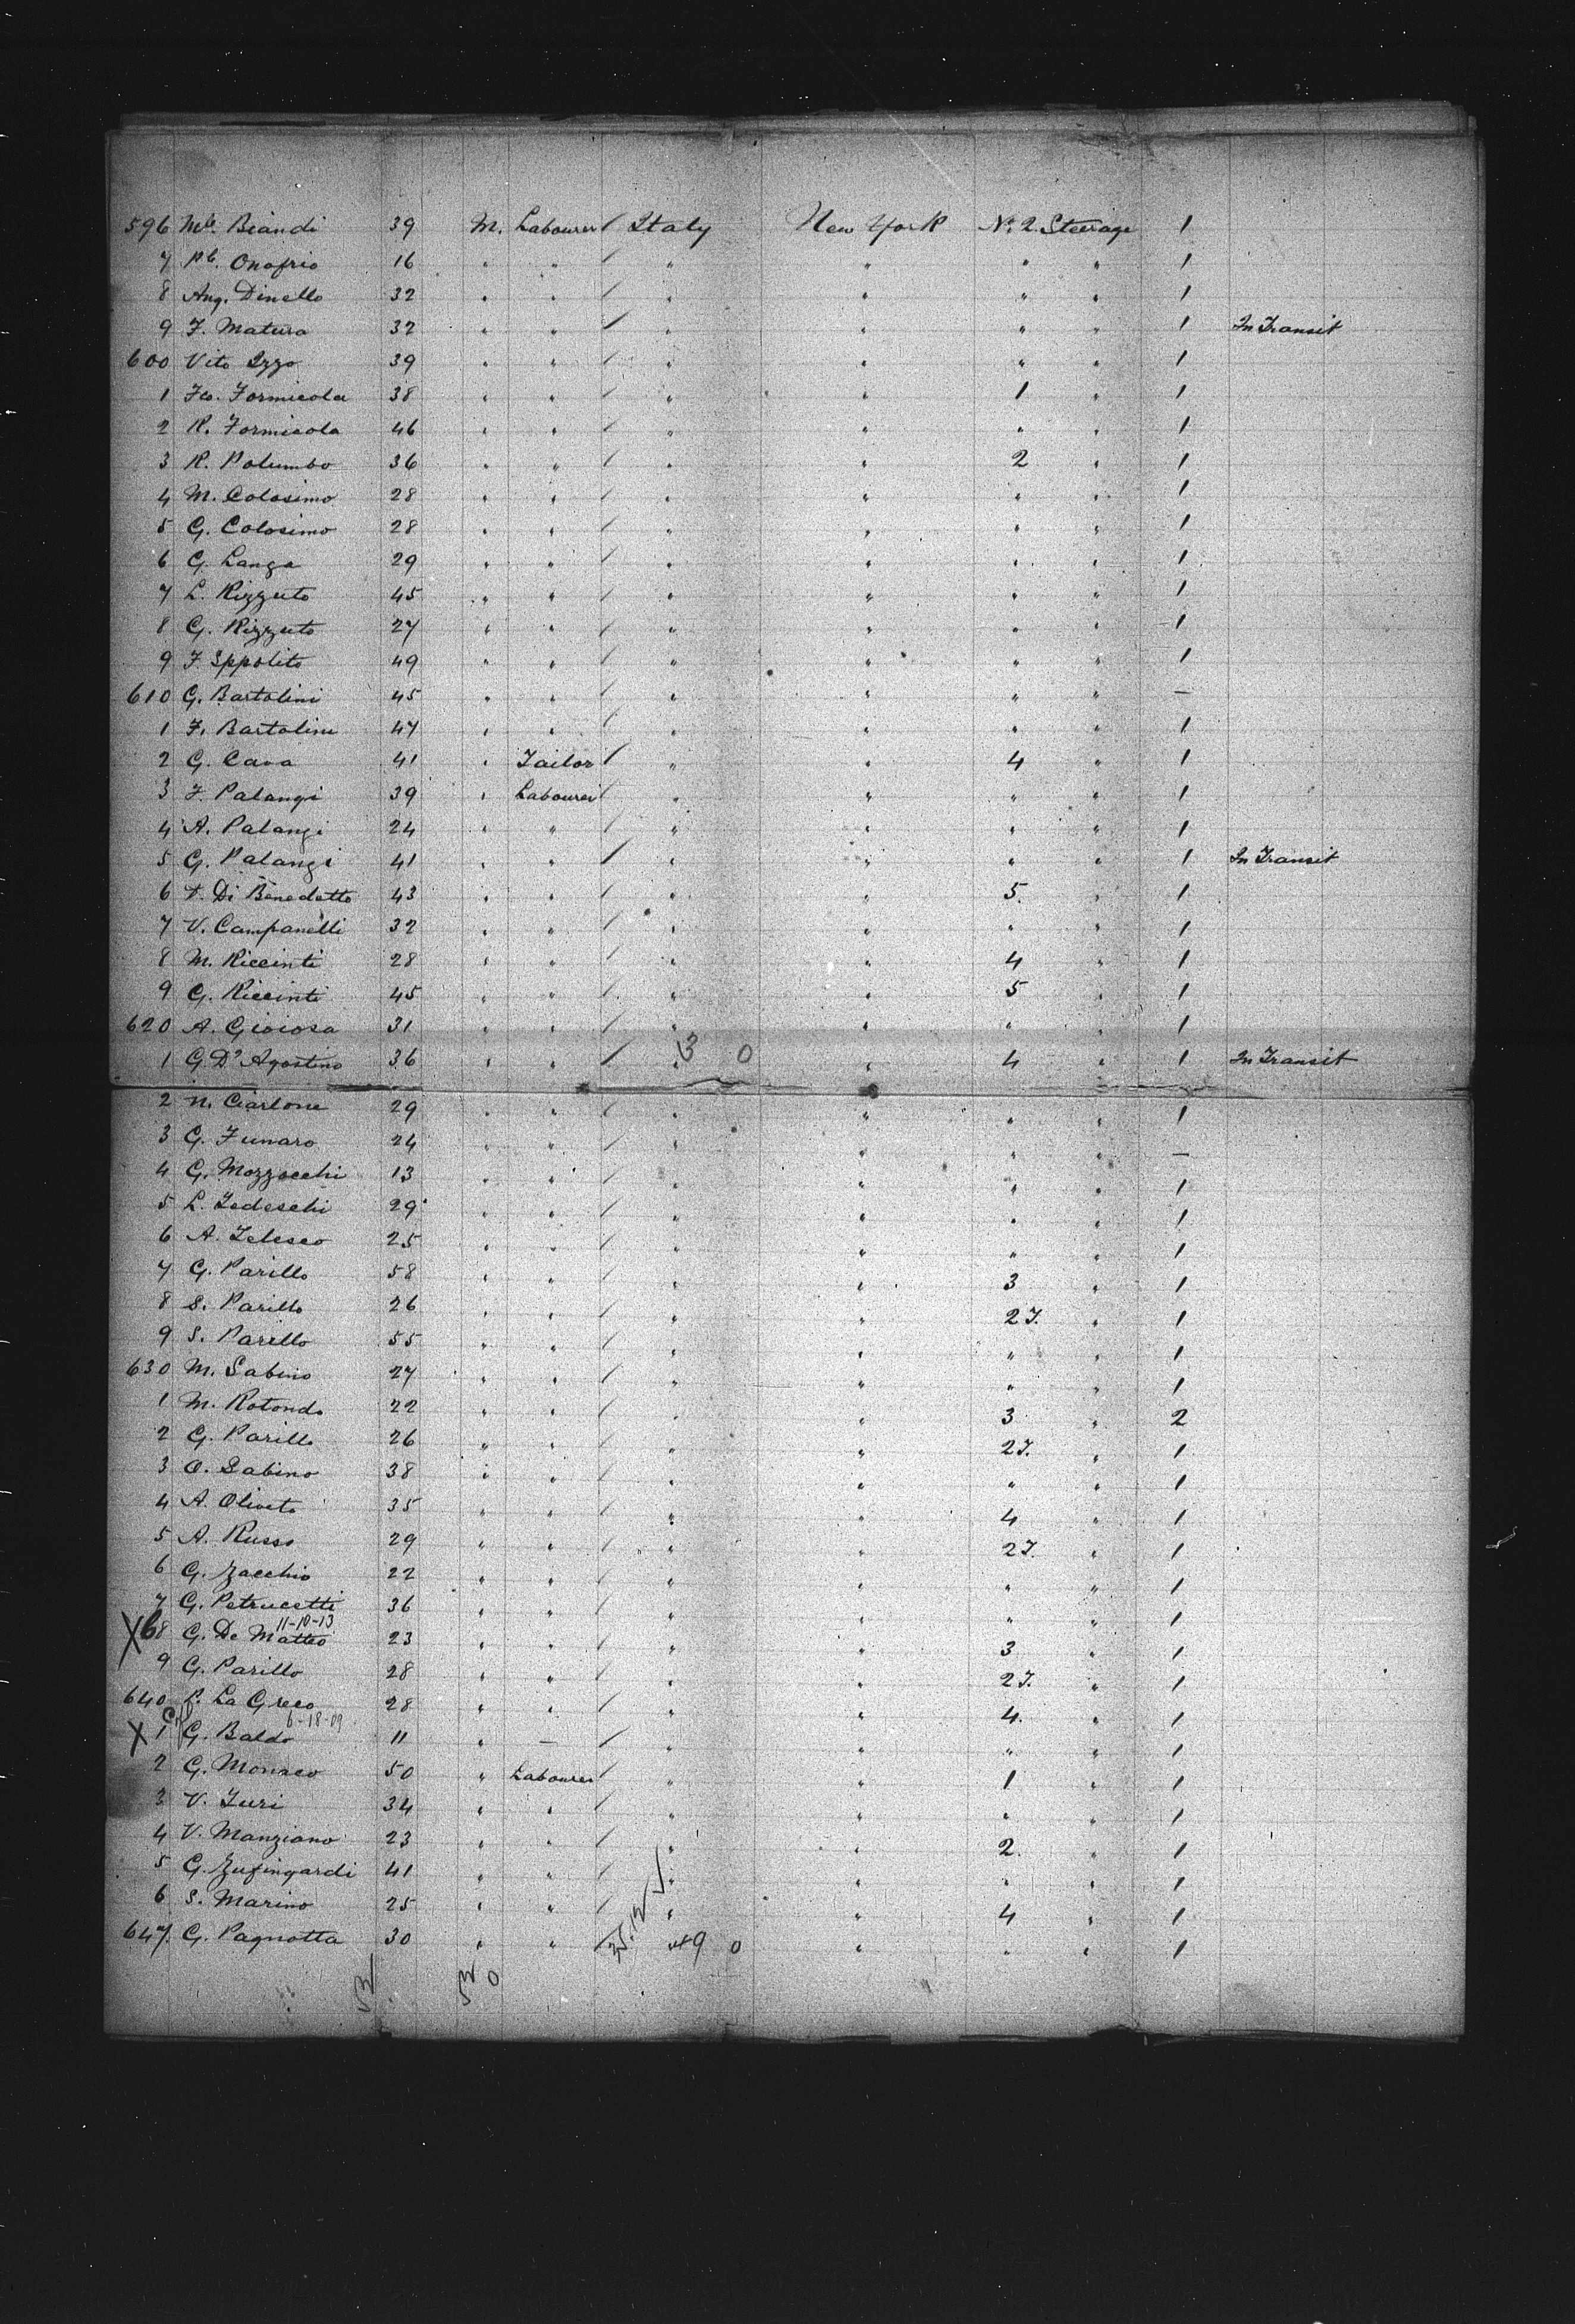 596 Mle. Biandi 39 M. Labourer / Italy New York No. 2 Steerage 1
7 Pb. Onofrio 16 " " / " " " " 1
8 Ang. Dinello 32 " " / " " " " 1
9 F. Matura 32 " " / " " " " 1 In Transit
600 Vito Izzo 39 " " / " " " " 1
1 Fco. Formicola 38 " " / " " 1 " 1
2 R. Formicola 46 " " / " " " " 1
3 R. Polumbo 36 " " / " " 2 " 1
4 M. Colosimo 28 " " / " " " " 1
5 G. Colosimo 28 " " / " " " " 1
6 G. Langa 29 " " / " " " " 1
7 L. Rizzuto 45 " " / " " " " 1
8 G. Rizzuto 27 " " / " " " " 1
9 F. Ippolito 49 " " / " " " " 1
610 G. Bartolini 45 " " / " " " " —
1 F. Bartolini 47 " " / " " " " 1
2 G. Cava 41 " Tailor / " " 4 " 1
3 F. Palangi 39 " Labourer / " " " " 1
4 A. Palangi 24 " " / " " " " 1
5 G. Palangi 41 " " / " " " " 1 In Transit
6 Di Benedetto 43 " " / " " 5. " 1
7 V. Campanelli 32 " " / " " " " 1
8 M. Riccinti 28 " " / " " 4 " 1
9 G. Riccinti 45 " " / " " 5 " 1
620 A. Gioiosa 31 " " / " " " " 1
1 G. D'Agostino 36 " " / " 3 0 " 4 " 1 In Transit
2 N. Ciarlone 29 " " / " " " " 1
3 G. Funaro 24 " " / " " " " —
4 G. Mozzocchi 13 " " / " " " " 1
5 L. Tedeschi 29 " " / " " " " 1
6 A. Telesco 25 " " / " " " " 1
7 G. Parillo 58 " " / " " 3 " 1
8 S. Parillo 26 " " / " " 2 F. " 1
9 S. Parillo 55 " " / " " " " 1
630 M. Sabino 27 " " / " " " " 1
1 M. Rotondo 22 " " / " " 3 " 2
2 G. Parillo 26 " " / " " 2 F. " 1
3 O. Sabino 38 " " / " " " " 1
4 A. Oliveto 35 " " / " " 4 " 1
5 A. Russo 29 " " / " " 2 F. " 1
6 G. Zacchio 22 " " / " " " " 1
7 G. Petrucetti 36 " " / " " " " 1
11-10-13
X 68 G. De Matteo 23 " " / " " 3 " 1
9 G. Parillo 28 " " / " " 2 F. " 1
640 P. La Greco 28 " " / " " 4. " 1
6-18-09
X 1 G. Baldo 11 " — / " " " " 1
2 G. Monaco 50 " Labourer / " " 1 " 1
3 V. Turi 34 " " / " " " " 1
4 V. Manziano 23 " " / " " 2. " 1
5 G. Zufingardi 41 " " / " " " " 1
6 S. Marino 25 " " / " " 4 " 1
647. G. Pagnotta 30 " " / " 49 0 " " " 1